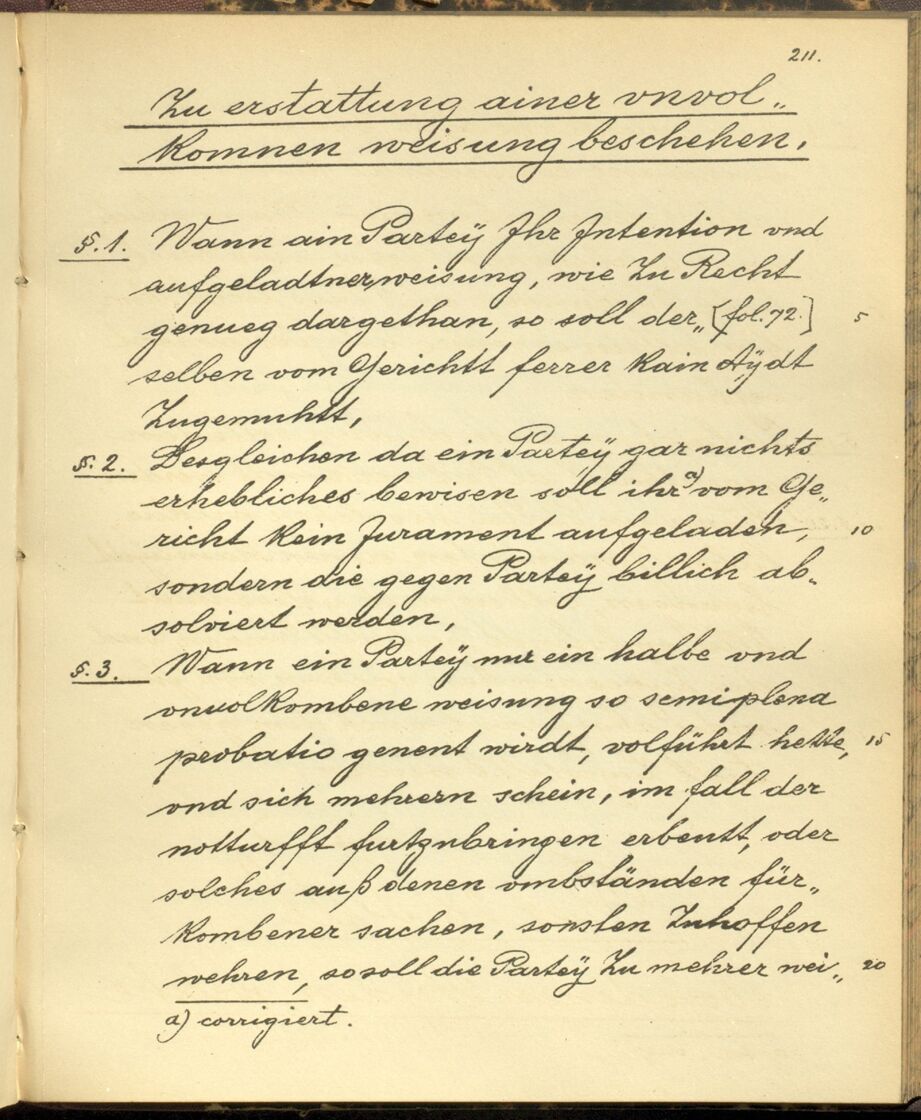 211.
Zu erstattung ainer vnvol„
komnen weisung beschehen.
§. 1. Wann ain Parteÿ Ihr Intention vnd
aufgeladtner weisung, wie Zu Recht
genueg dargethan, so soll der„ [fol. 72.] 5
selben vom Gerichtt ferrer kain Aÿdt
Zugemuhtt,
§. 2. Desgleichen da ein Parteÿ gar nichts
erhebliches bewisen soll ihr a) vom Ge„
richt kein Jurament aufgeladen, 10
sondern die gegen Parteÿ billich ab„
solviert werden,
§. 3. Wann ein Parteÿ nur ein halbe vnd
vnuolkombene weisung so semiplena
probatio genent wirdt, volführt hette, 15
vnd sich mehrern schein, im fall der
notturfft furtzubringen erbeutt, oder
solches auß denen vmbständen für„
kombener sachen, sonsten Zuhoffen
wehren, so soll die Parteÿ Zu mehrer wei„ 20
a) corrigiert.